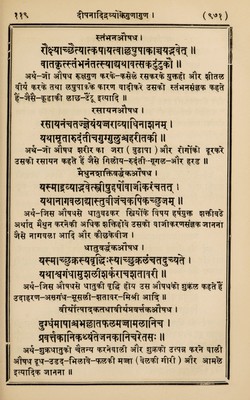 ११९ दीपनादिद्रव्योंकेगुणागुण । (९७१)
स्तंभनऔषध
रौक्ष्याच्छैत्यात्कषायत्वाल्लघुपाकाच्चयद्भवेत् ॥
वातकृत्स्तंभनंतत्स्याद्यथावत्सकटुंटुकौ ॥
अर्थ-जो औषध रूक्षगुण करके-कसैले रसकरके युक्तहो और शीतल
वीर्य करके तथा लघुपाकके कारण वादीकरे उसको स्तंभनसंज्ञक कहते
हैं-जैसे-कूडाकी छाल-टेंटू इत्यादि ॥
रसायनऔषध
रसायनंचतज्ज्ञेयंयज्जराव्याधिनाशनम् ॥
यथामृतारुदंतीचगुग्गुलुश्चहरीतकी ॥
अर्थ-जो औषध शरीर का जरा ( बुढापा ) और रोगोंको दूरकरे
उसको रसायन कहते हैं जैसे गिलोय-रुदंती-गूगल-और हरड ॥
मैथुनशक्तिवर्द्धकऔषध
यस्माद्द्रव्याद्भवेत्स्त्रीषुहर्षोवाजीकरंचतत् ॥
यथानागबलाद्यास्तुबीजंचकपिकच्छुजम् ॥
अर्थ-जिस औषधसे धातुबढकर स्त्रियोंके विषय हर्षयुक्त शक्तिबढे
अर्थात् मैथुन करनेकी अधिक शक्तिहोवे उसको वाजीकरणसंज्ञक जानना
जैसे नागबला आदि और कौंछकेबीज ।
धातुवर्द्धकऔषध
यस्माच्छुक्रस्यवृद्धिःस्याच्छुक्रलंचतदुच्यते ।
यथाश्वगंधामुसलीशर्कराचशतावरी ॥
अर्थ-जिस औषधसे धातुकी वृद्धि होय उस औषधको शुक्रल कहते हैं
उदाहरण-असगंध-मूसली-शतावर-मिश्री आदि ॥
वीर्योत्पादकतथावीर्यप्रवर्त्तकऔषध
दुग्धंमाषाश्चभल्लातफलमज्जामलानिच ।
प्रवर्त्तकानिकथ्यंतेजनकानिचरेतसः ॥
अर्थ-शुक्रधातुको चैतन्य करनेवाली और शुक्रको उत्पन्न करने वाली
औषध दूध-उडद-भिलावे-फलकी मज्जा (बेलकी गीरी) और आमले
इत्यादिक जानना ॥